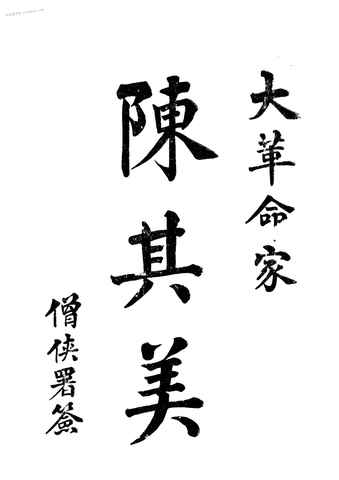 大革命家
陳其美
僧侠署簽